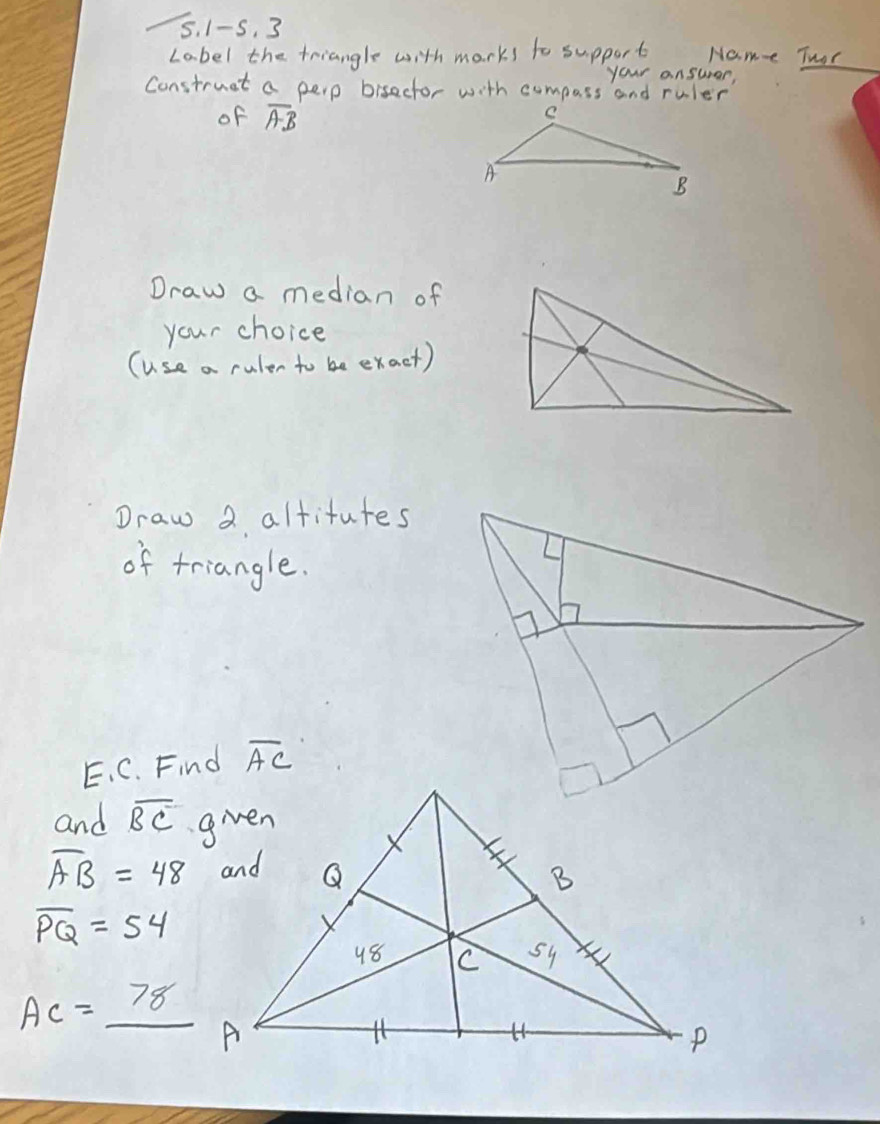 5.1-5.3
Label the triangle with marks to support your answer.
Name
Construct a perp bisector with compass and ruler
of AB
C
A
B
Draw a median of
your choice
(use a ruler to be exact)
Draw 2 altitutes
of triangle.
E.C. Find AC
and BC given
AB = 48 and
PQ = 54
AC = 78
Q
B
48
C
54
A
P